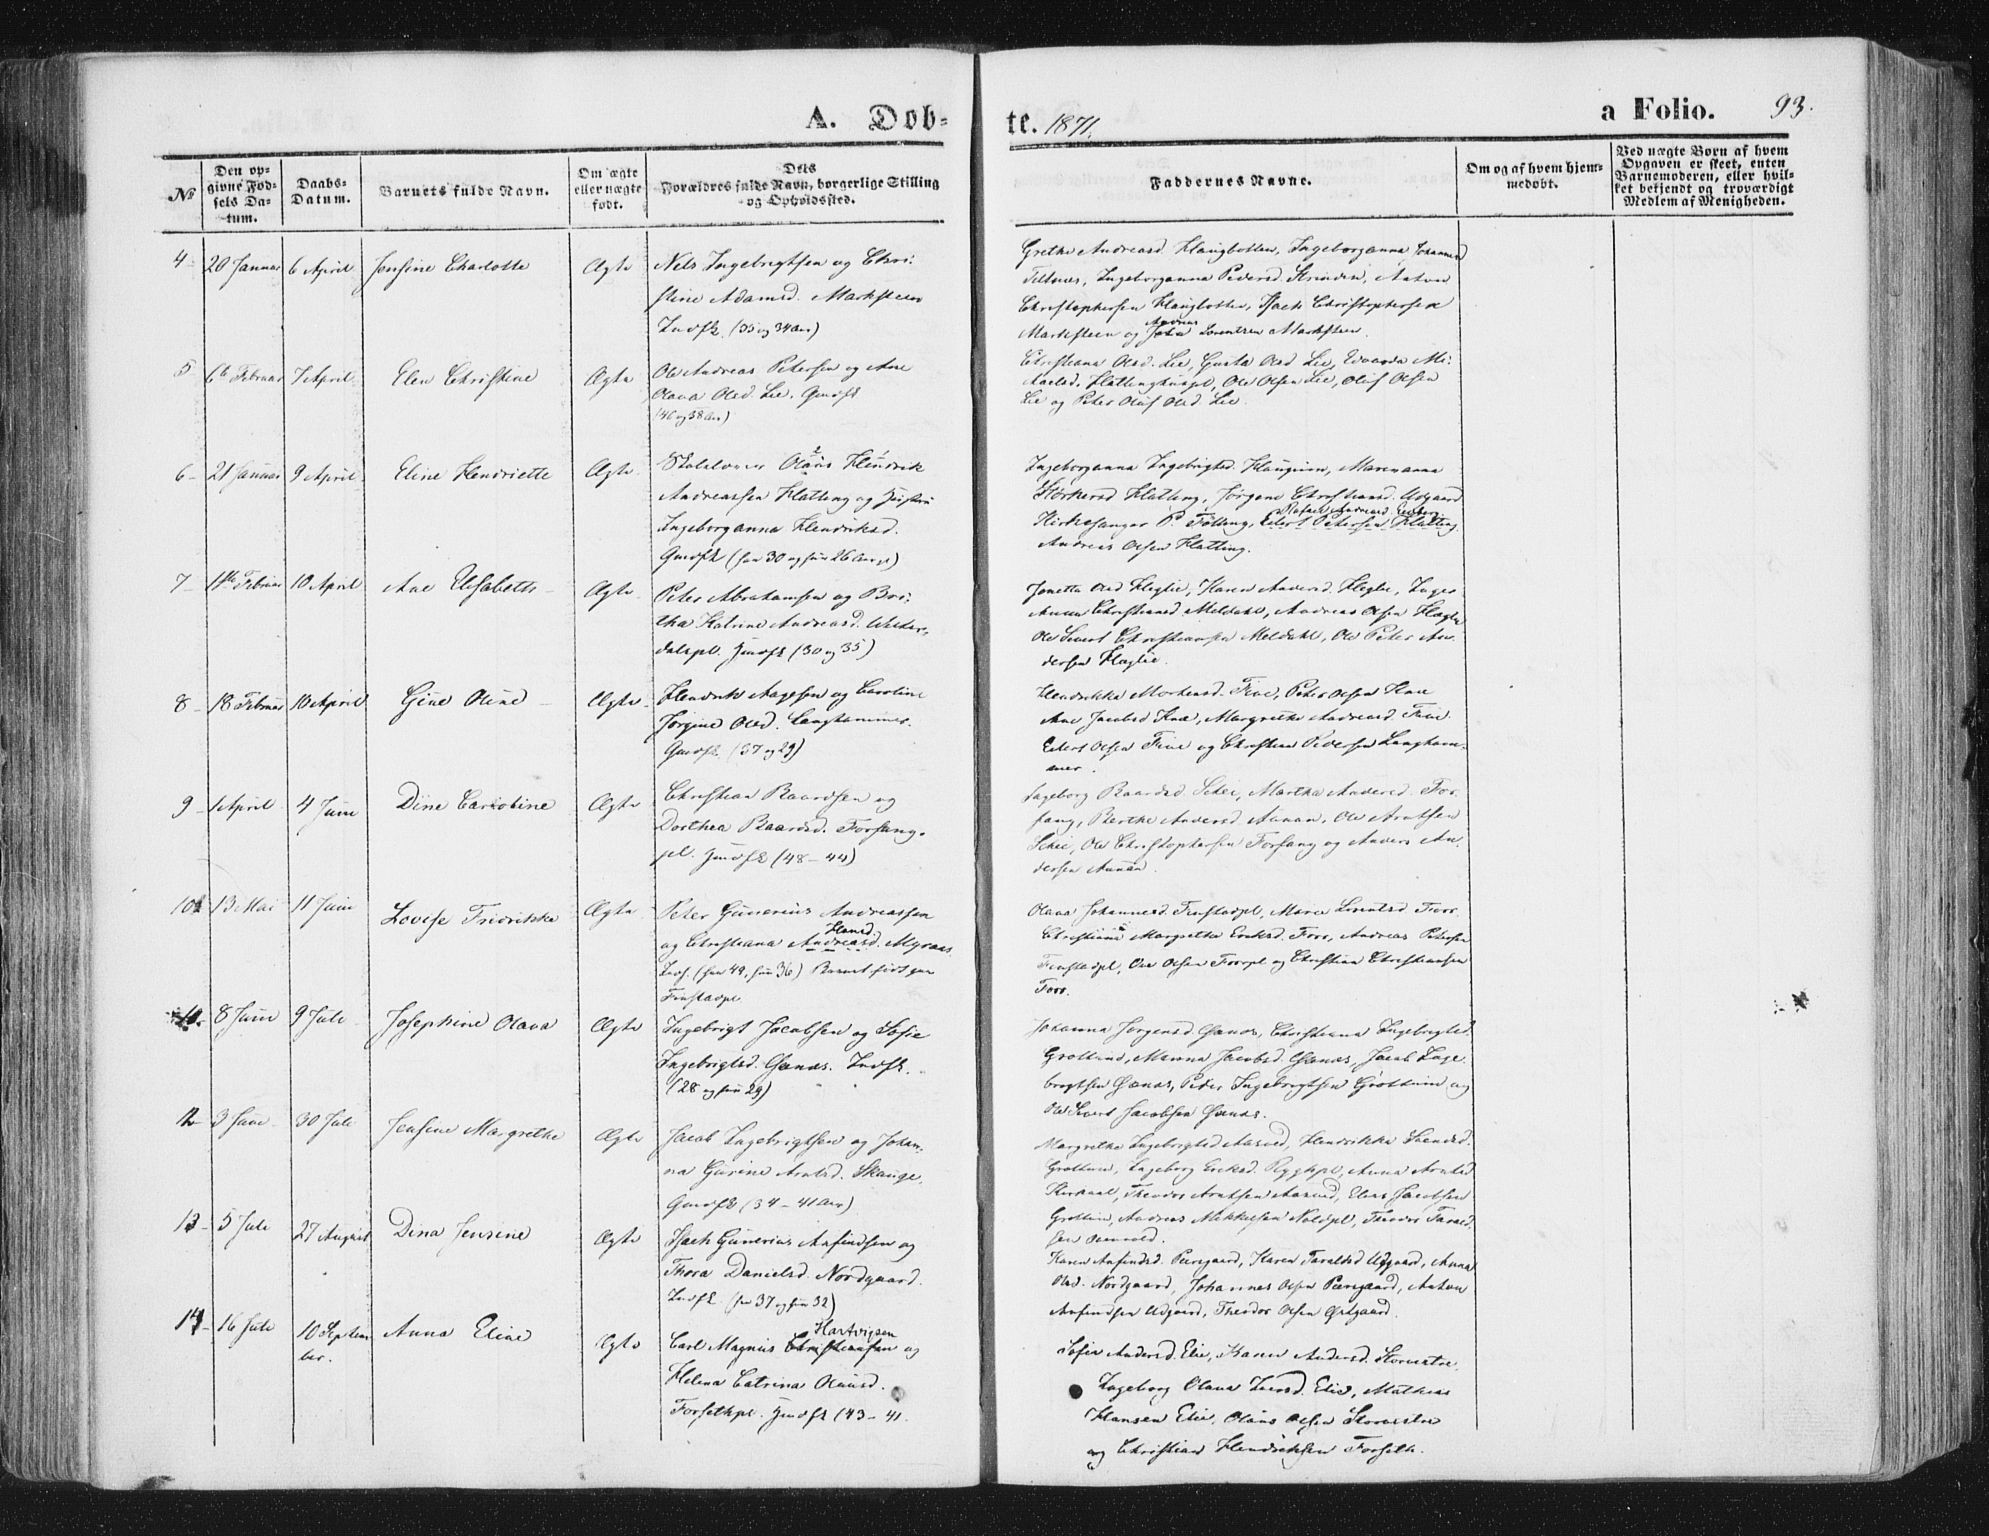 A. Døb-
te. 1871.
a Folio. 93.
№
Den op-
givne Fød-
sels Da-
tum.
Daabs-
Datum.
Barnets fulde Navn.
Om ægte
eller uægte
født.
Dets
Forældres fulde Navn, borgerlige Stilling
og Opholdssted.
Faddernes Navne.
Om og af hvem hjem-
medøbt.
Ved uægte Børn af hvem
Opgaven er skeet, enten
Barnemoderen, eller hvil-
ket bekjendt og troværdigt
Medlem af Menigheden.
4 20 Januar 6 April Jensine Charlotte Ægte
Nels Ingebrigtsen og Chri-
stine Adamsd. Marksteen
Indst. (35 og 34 Aar)
Grethe Andreasd. Haugbotten, Ingeborganna Johannesd
Feltnes, Ingeborganna Pedersd. Strinden, Anton
Christophersen Haugbotten, Isach Christophersen
Marksteen og Andreas Lorentsen Marksteen.
5 6te Februar 7 April Elen Christine Ægte
Ole Andreas Petersen og Ane
Olava Olsd. Lie. Gmdsk
(46 og 38 Aar)
Christiana Olsd. Lie, Gusta Olsd Lie, Edvarda Mi-
kaelsd. Hattinghuspl, Ole Olsen Lie, Oluf Olsen
Lie og Peter Oluf Olsd. Lie.
6 21 Januar 9 April Eline Hendriette Ægte
Skolelærer Olaus Hendrik
Andreassen Hatling og Hustru
Ingeborganna Hendriksd.
Gmdsk (han 30 og hun 26 Aar)
Ingeborganna Ingebrigtsd. Haugum, Marenanna
Størkersd Hatling, Jørgine Christiansd. Udgaard
Kirkesanger P. Følling, Edert Petersen Hatling
Andreas Olsen Hatling.
7 11te Februar 10 April Ane Elisabeth Ægte
Peter Abrahamsen og Bri-
tha Katrine Andreasd. Wester-
dalspl. Hmdsk (30 og 35)
Jonetta Olsd Heglie, Karen Andersd. Heglie, Inger
Anna Christiansd Meldahl, Andreas Olsen Heglie
Ole Sivert Christiansen Meldahl, Ole Peter An-
dersen Heglie.
8 18 Februar 10 April Gine Oline Ægte
Hendrik Aagesen og Caroline
Jørgine Olsd. Langhammer.
Gmdsk. (37 og 29)
Hendrikka Mortensd. Five, Peter Olsen Hae
Ane Jacobsd Hae, Margrethe Andreasd. Five
Edert Olsen Five og Christian Pedersen Langham-
mer.
9 1 April 4 Juni Dine Carrobine Ægte
Christian Baardsen og
Dorthea Baardsd. Forsang-
pl. Hmdsk (48 - 44)
Ingeborg Baardsd Schei, Martha Andersd. For-
sang, Berthe Andersd. Aunan, Ole Arntsen
Schei, Ole Christophersen Forsang og Anders An-
dersen Aunan.
10 13 Mai 11 Juni Lovise Fredrikke Ægte
Peter Gunerius Andreassen
Hansd.
og Christiana Andreasd. Myraas
Inds. (han 49, hun 36) Barnet født paa
Finstadpl
Olava Johannesd. Finstadpl, Maria Lorntsd Forr.
Christiana Margrethe Eriksd. Forr, Andreas Petersen
Finstadpl, Ole Olsen Forrpl og Christian Christiansen
Forr.
11. 8 Juni 9 Juli Josephine Olava Ægte
Ingebrigt Jacobsen og Sofie
Ingebrigtsd. Gsenaes. Indsk.
(28 og hun 29)
Johanna Jørgensd. Gsenaes, Christiana Ingebrigtsd.
Grøttum, Manna Jacobsd. Gsenaes, Jacob Inge-
brigtsen Gsenaes, Peder Ingebrigtsen Grøttum og
Ole Sivert Jacobsen Gsenaes.
12 3 Juni 30 Juli Jensine Margrethe Ægte
Jacob Ingebrigtsen og Johan-
na Gurine Arntsd. Skauge,
Gmdsk (34 - 41 Aar)
Margrethe Ingebrigtsd Aasved, Hendrikka Svendsd.
Grøttum, Ingeborg Eriksd. Ryghpl, Anna Arntsd
Theodor Arntsen Aasved, Elias Jacobsen
Grøttum, Andreas Mikkelsen Noldpl, Theodor Tarald-
sen
13 5 Juli 27 August Dina Jensine Ægte
Isach Gunerius Anfindsen og
Thora Danielsd. Nordgaard.
Indsk. (han 37 og hun 32)
Karen Anfindsd. Peersgaard, Karen Taraldsd Udgaard, Anna
Olsd. Nordgaard, Johannes Olsen Peersgaard, Anton
Anfindsen Udgaard, Theodor Olsen Østgaard.
14 16 Juli 10 Septem-
ber. Anna Eline Ægte
Hartvigsen
Carl Magnus Christiansen og
Helena Catrina Olausd.
Forsethpl. Hmdsk (43 - 41.
Sofia Andersd. Elie, Karen Andersd. Storvatne
Ingeborg Olava Iversd. Elie, Mathias
Hansen Elie, Olaus Olsen Storvatne
og Christian Hendriksen Forseth.